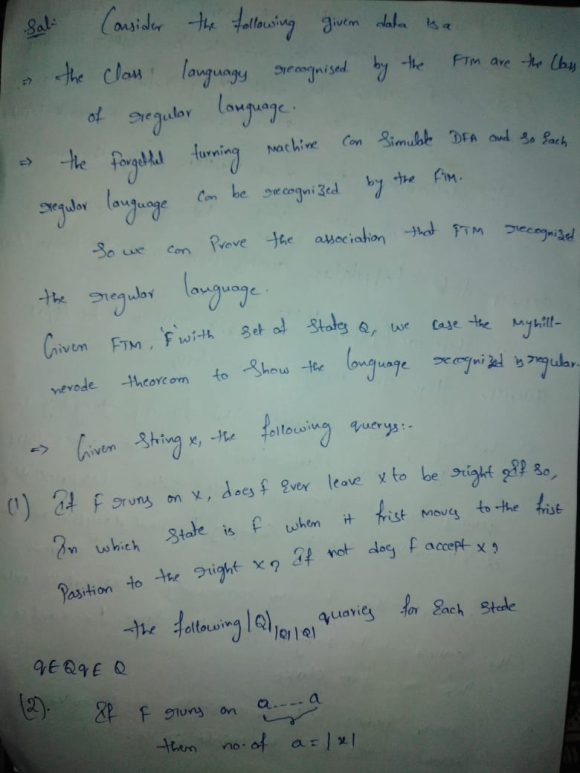 Sol:- Consider the following given data is a
⇒ the class languages recognised by the FTM are the class
of regular language.
⇒ the forgetful turning machine can Simulate DFA and so Each
regular language can be recognized by the FTM.
So we can Prove the association that FTM recognized
the regular language.
Given FTM, 'F' with set of states Q, we case the Myhill-
nerode theorcom to Show the language recognized is regular.
⇒ Given String x, the following querys:-
(1) If F runs on x, does f Ever leave x to be right off so,
In which state is f when it frist moves to the frist
Position to the right x? If not does f accept x?
the following |Q| |Q||Q| quaries for Each state
q∈Qq∈ Q
(2). If F runs on a.....a
then no.of a = |x|